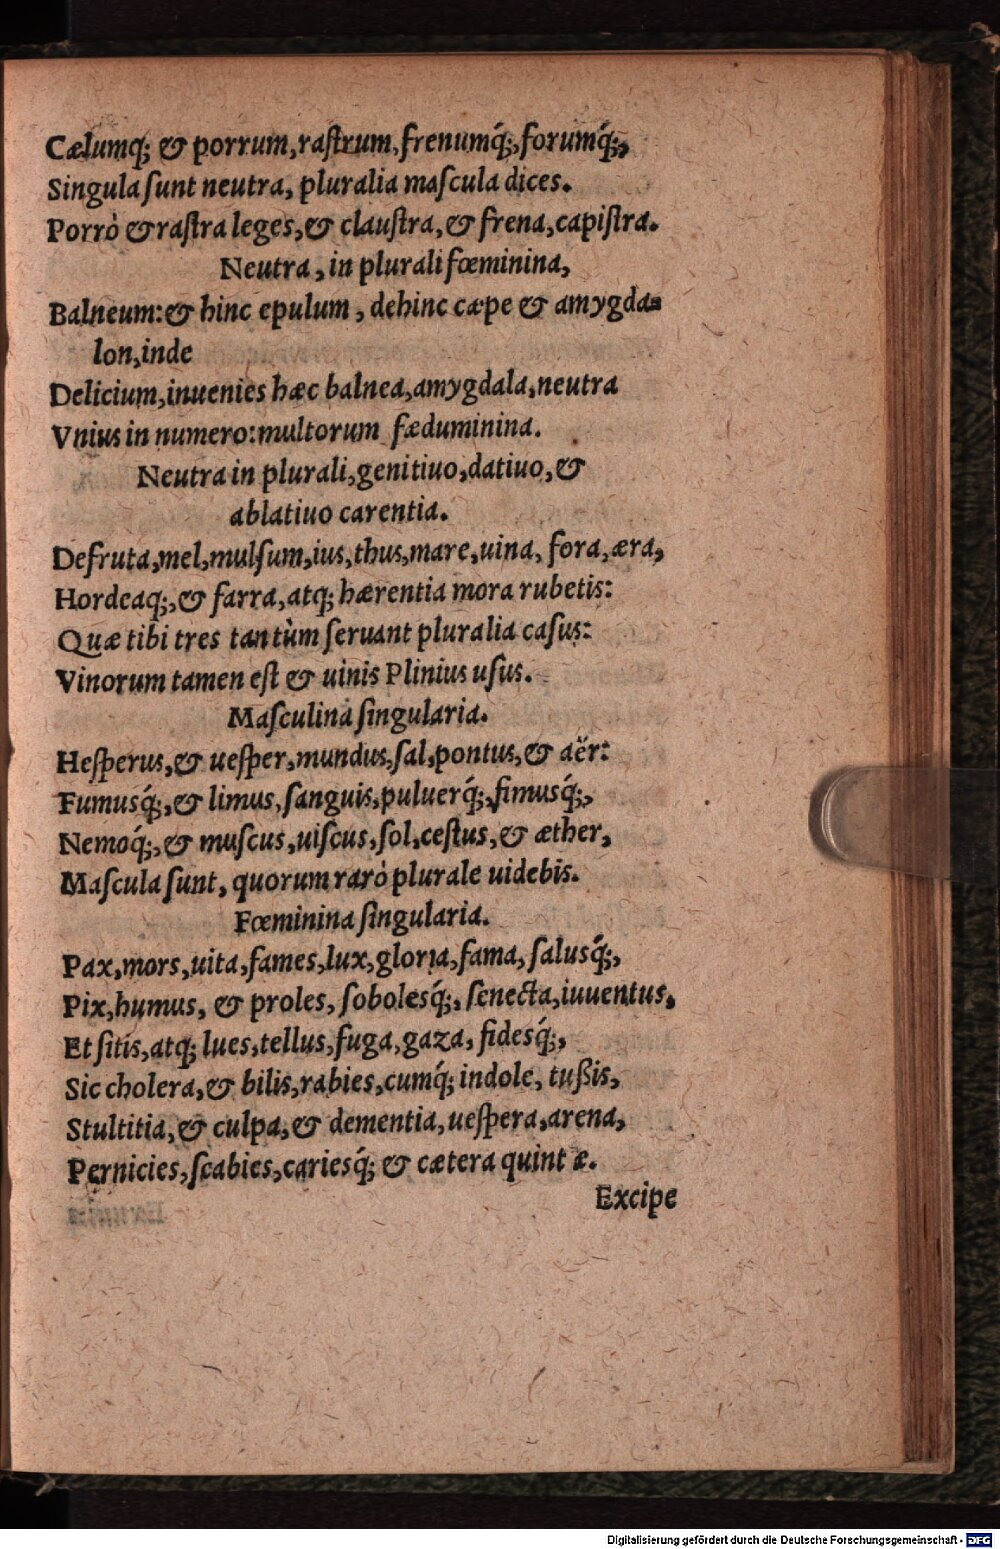 Cælumq́; & porrum, raſtrum, frenumq́;, forumq́;,
Singula ſunt neutra, pluralia maſcula dices.
Porrò & raſtra leges, & clauſtra, & frena, capiſtra.
Neutra, in plurali fœminina,
Balneum: & hinc epulum, dehinc cæpe & amygda=
lon, inde
Delicium, inuenies hæc balnea, amygdala, neutra
Vnius in numero: multorum fæduminina.
Neutra in plurali, genitiuo, datiuo, &
ablatiuo carentia.
Defruta, mel, mulſum, ius, thus, mare, uina, fora, æra,
Hordeaq;, & farra, atq; hærentia mora rubetis:
Quæ tibi tres tantùm ſeruant pluralia caſus:
Vinorum tamen eſt & uinis Plinius uſus.
Maſculina ſingularia.
Heſperus, & ueſper, mundus, ſal, pontus, & aër:
Fumusq́;, & limus, ſanguis, puluerq́;, fimusq́;,
Nemoq́;, & muſcus, uiſcus, ſol, ceſtus, & æther,
Maſcula ſunt, quorum rarò plurale uidebis.
Fœminina ſingularia.
Pax, mors, uita, fames, lux, gloria, fama, ſalusq́;,
Pix, humus, & proles, ſobolesq́;, ſenecta, iuuentus,
Et ſitis, atq; lues, tellus, fuga, gaza, fidesq́;,
Sic cholera, & bilis, rabies, cumq́; indole, tußis,
Stultitia, & culpa, & dementia, ueſpera, arena,
Pernicies, ſcabies, cariesq́; & cætera quintæ.
Excipe
Digitalisierung gefördert durch die Deutsche Forschungsgemeinschaft - DFG